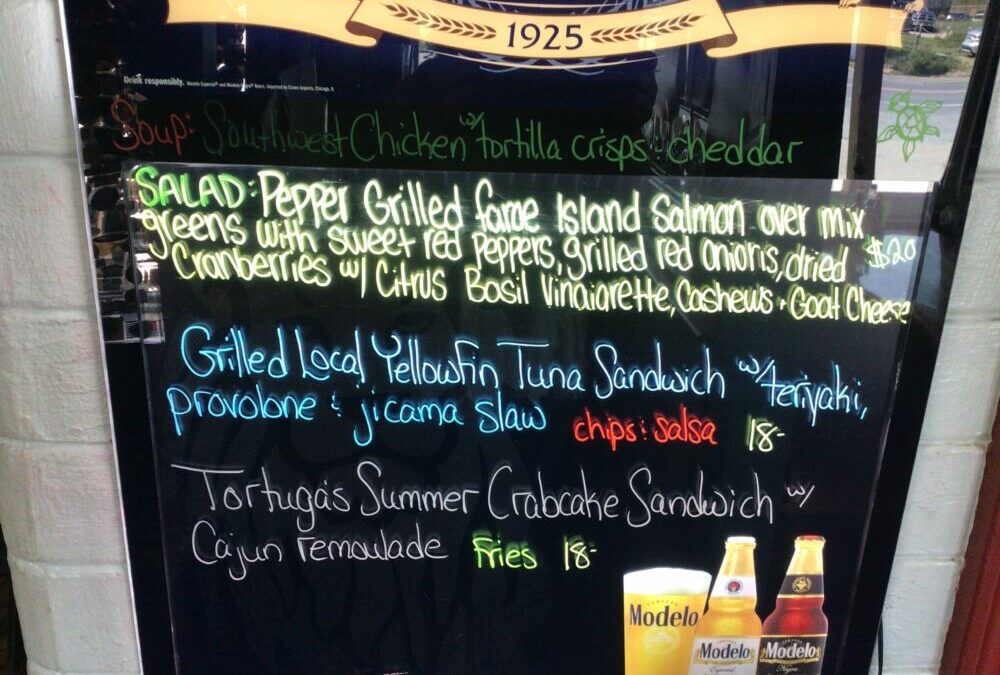 1925
Drink responsibly.
Soup: Southwest Chicken w/ tortilla crisps : cheddar
SALAD: Pepper Grilled faroe Island Salmon over mix
greens with sweet red peppers, grilled red onions, dried $20
Cranberries w/ Citrus Basil Vinaiarette, Cashews + Goat Cheese
Grilled Local Yellowfin Tuna Sandwich w/ teriyaki,
provolone : jicama slaw chips : salsa 18-
Tortuga's Summer Crabcake Sandwich w/
Cajun remoulade Fries 18-
Modelo
Modelo
Especial
Modelo
Negra